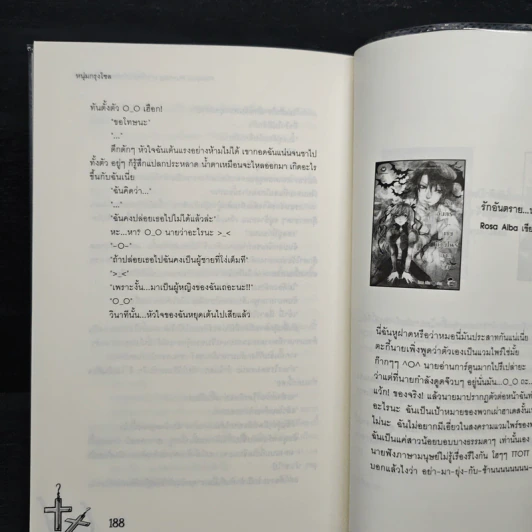 หนุ่มกรุงโซล
ทันตั้งตัว O_O เฮือก!
"ขอโทษนะ"
"..."
ตึกตักๆ หัวใจฉันเต้นแรงอย่างห้ามไม่ได้ เขากอดฉันแน่นจนชาไป
ทั้งตัว อยู่ๆ ก็รู้สึกแปลกประหลาด น้ำตาเหมือนจะไหลออกมา เกิดอะไร
ขึ้นกับฉันเนี่ย
"ฉันคิดว่า..."
"..."
"ฉันคงปล่อยเธอไปไม่ได้แล้วล่ะ"
หะ...หา? O_O นายว่าอะไรนะ >_<
"-O-"
"ถ้าปล่อยเธอไปฉันคงเป็นผู้ชายที่โง่เต็มที"
">_<"
"เพราะงั้น...มาเป็นผู้หญิงของฉันเถอะนะ!!"
"O_O"
วินาทีนั้น...หัวใจของฉันหยุดเต้นไปเสียแล้ว
188
รักอันตราย...
Rosa Alba เขีย
นี่ฉันหูฝาดหรือว่าหมอนี่มันประสาทกันแน่เนี่ย
ตะกี้นายเพิ่งพูดว่าตัวเองเป็นแวมไพร์ใช่มั้ย
ก๊ากๆๆ ^O^ นายอ่านการ์ตูนมากไปรึเปล่ายะ
ว่าแต่ที่นายกำลังดูดจ๊วบๆ อยู่นั่นมัน...O_O อะ...
แว้ก! ของจริง! แล้วนายมาปรากฏตัวต่อหน้าฉันทำ
อะไรนะ ฉันเป็นเป้าหมายของพวกเผ่าฮาเดสงั้น
ไม่นะ ฉันไม่อยากมีเอี่ยวในสงครามแวมไพร์ของพ
ฉันเป็นแค่สาวน้อยบอบบางธรรมดาๆ เท่านั้นเอง
นายฟังภาษามนุษย์ไม่รู้เรื่องรึไงกัน โฮๆๆ TTOTT
บอกแล้วไงว่า อย่า-มา-ยุ่ง-กับ-ช้านนนนนนนน-